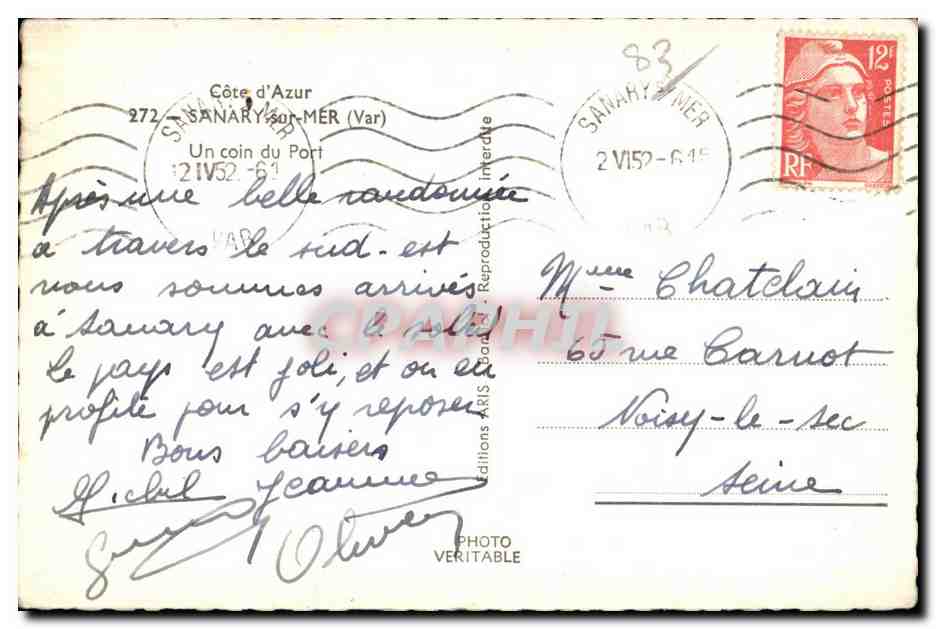 Côte d'Azur
272 - SANARY-sur-MER (Var)
Un coin du Port
SANARY S MER
2 IV52.-61
VAR
Après une belle randonnée
a travers le sud-est
nous sommes arrivés
à Sanary avec le soleil
le pays est joli, et on en
profite pour s'y reposer
Bons baisers
Michel Jeannine
Olivier
Editions ARIS - Bandol - Reproduction Interdite
PHOTO
VERITABLE
CPAPHIL
83
SANARY S MER
2 VI52-615
VAR
12F
POSTES
RF
Mme Chatelain
65 rue Carnot
Noisy-le-sec
Seine